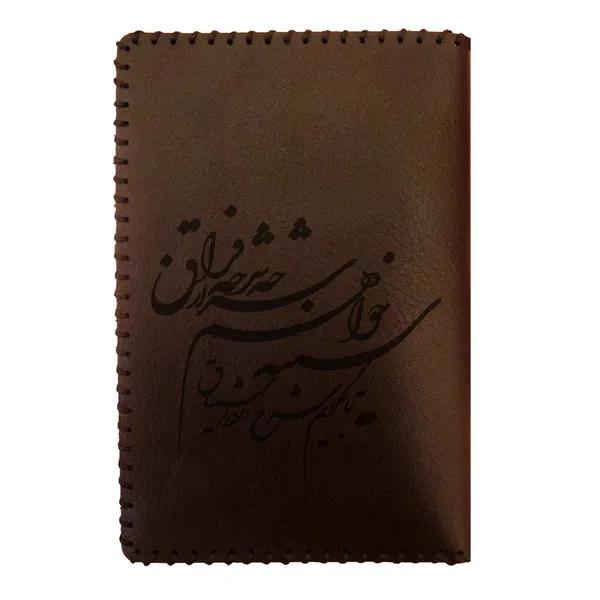 سینه خواهم شرحه شرحه از فراق
تا بگویم شرح درد اشتیاق